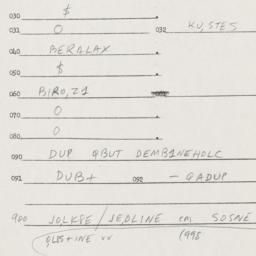 030 $
031 O 032 KU, STES
040 BERALAX
050 $
060 BIRO, Z1
070 O
080 O
090 DUP QBUT DEMB1NEHOLC
091 DUB+ 092 - QADUP
900 JOLKSE / JEDLINE em SOSNE